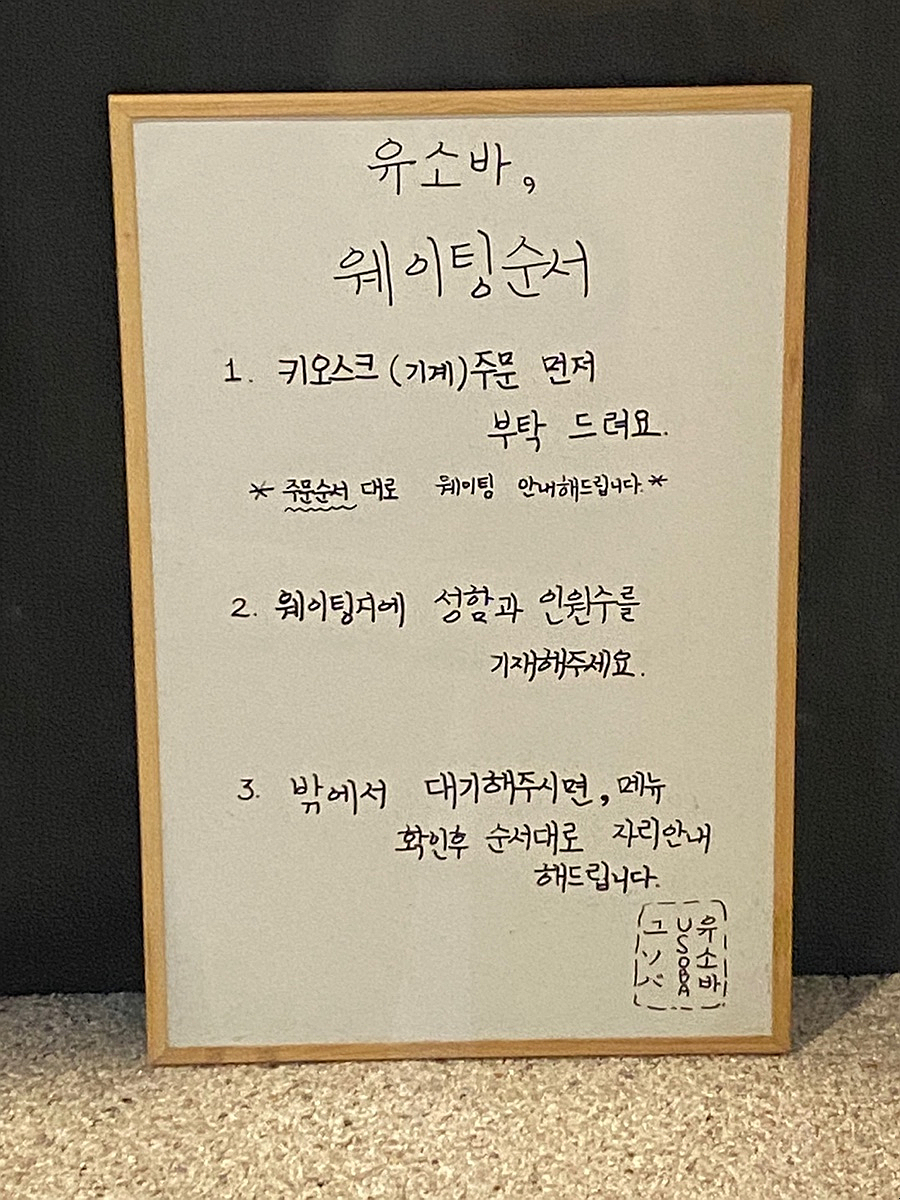 유소바,
웨이팅순서
1. 키오스크(기계)주문 먼저
부탁 드려요.
* 주문순서 대로 웨이팅 안내해드립니다. *
2. 웨이팅지에 성함과 인원수를
기재해주세요.
3. 밖에서 대기해주시면, 메뉴
확인후 순서대로 자리안내
해드립니다.
유소바
USOBA
ユソバ